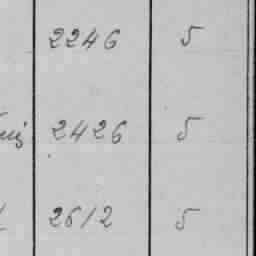 2246 5
2426 5
2612 5